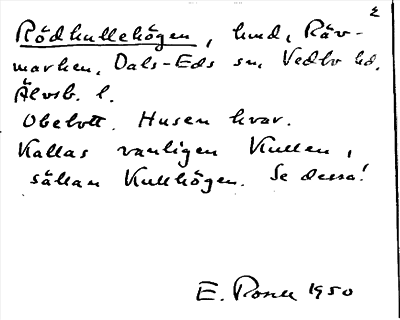 2
Rödkullehögen, hmd, Räv-
marken, Dals-Eds sn, Vedbo hd,
Älvsb. l.
Obebott. Husen kvar.
Kallas vanligen Kullen,
sällan Kullhögen. Se dessa!
E. Rosell 1950